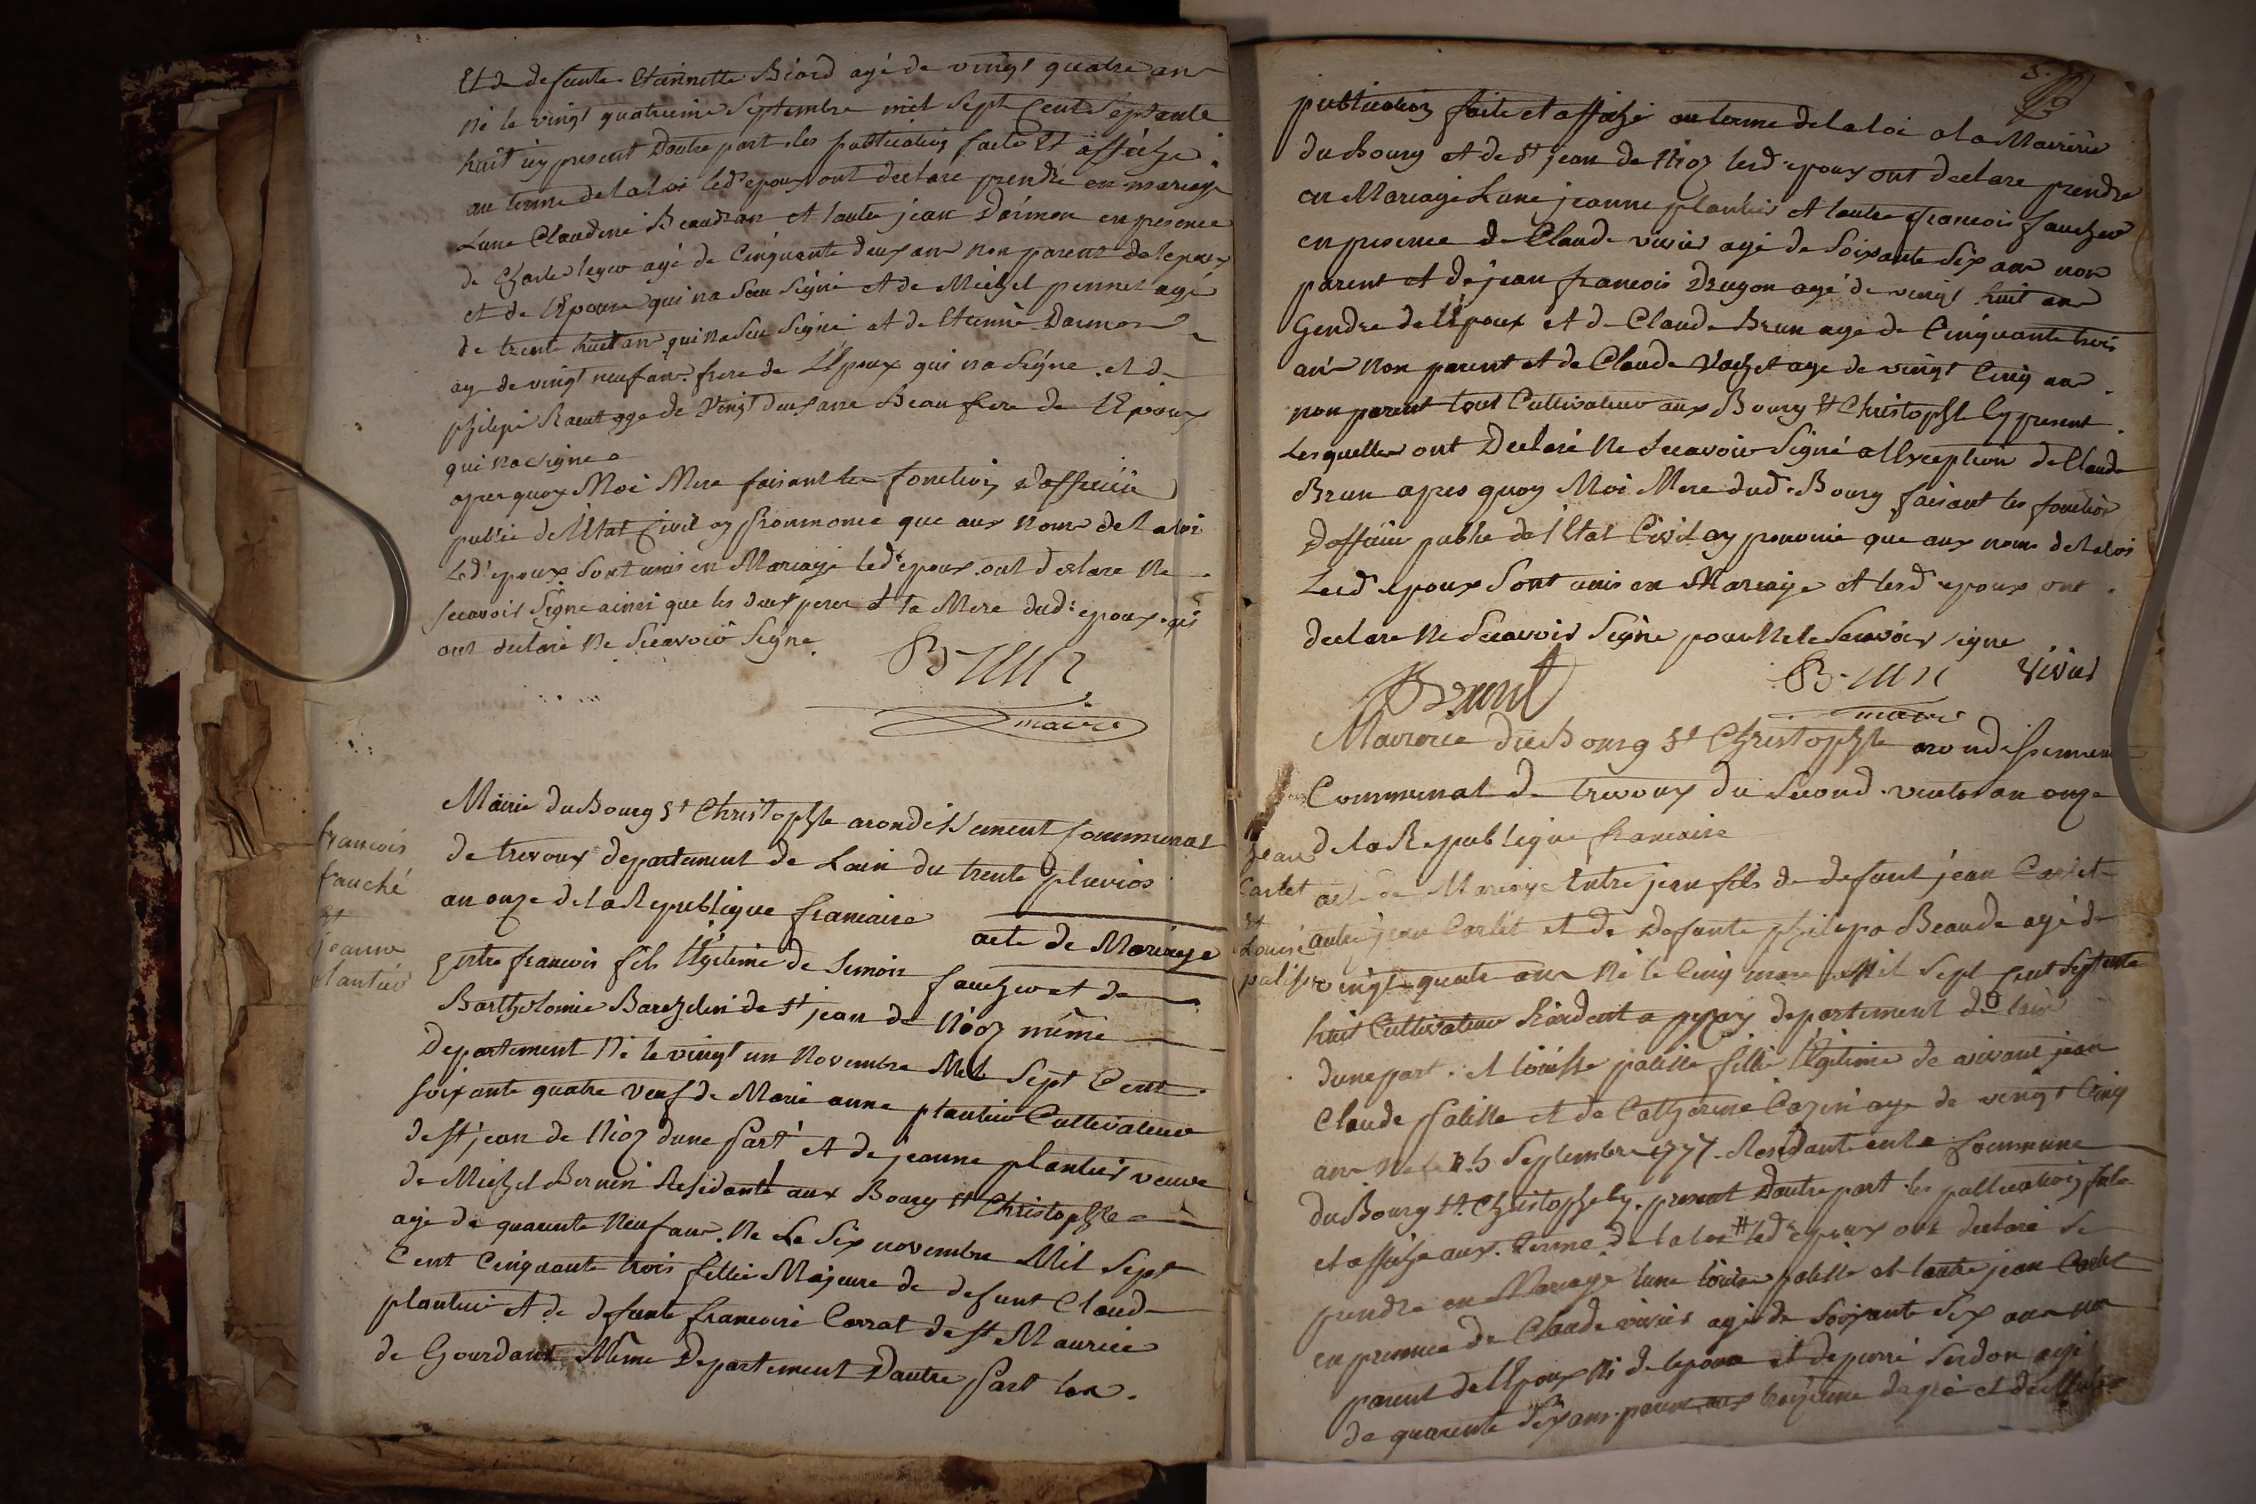 Et de defunte Etiennette Biord agé de vingt quatre an
né le vingt quatrieme Septembre mil sept Cent Septante
huit icy present Dautre part les publication faite Et affiche
au terme de la loi led. epoux ont declare prendre en mariage
Lune Claudine Beaudran et lautre jean Darmon en presence
de Charle leger agé de Cinquante deux an non parent de lepoux
et de l'Epouse qui na Seu Signé et de Michel pernet agé
de trente huit an qui na Seu Signé et de Etienne Darmon
age de vingt neuf an frere de L'Epoux qui na Signe et de
philipe age de Vingt deux ans Beau frere de l'Epoux
qui na signe
apres quoy Moi Mere faisant les fonction d'afficié
public de l'Etat Civil ay prononce que aux nom de la loi
Led. epoux sont unis en Mariage led. epoux ont declare ne
scavoir Signe ainsi que les deux peres et la Mere dud. epoux qui
ont declaré ne Scavoir Signe.
Brun
maire
Mairie du Bourg St Christophle arondissement Communal
de trevoux departement de Lain du trente pluvios
an onze de la Republique francaise
acte de Mariage
francois
fauché
et
jeanne
plantier
Entre francois fils légitime de Simon faucher et de
Barthelomie Barchelin de St jean de Nioz même
Departement né le vingt un Novembre Mil Sept Cent
soixante quatre veuf de Marie anne plantier Cultivateur
de St jean de Nioz dune part et de jeanne plantier veuve
de Michel Bernin Residante aux Bourg St Christophle
agé de quarente neuf an. Ne Le Six novembre Mil Sept
Cent Cinquante trois fillie Majeure de defunt Claude
plantier et de defunte francoise Carrat de St Maurice
de Gourdans Même Departement Dautre part les
5
publication faite et affiche au terme de la loi a la Mairie
du Bourg et de St jean de Nioz lesd. epoux ont declare prendre
en Mariage Lune jeanne plantier et lautre francois faucher
en presence de Claude vivier agé de Soixante Six an non
parent et de jean francois Drugon agé de vingt huit an
Gendre de l'Epoux et de Claude Brun age de Cinquante trois
an non parent et de Claude Vachet age de vingt Cinq an
non parent tout Cultivateur aux Bourg St Christophle Cy present
Lesquelles ont Declaré ne Scavoir Signé a l'exception de Claude
Brun apres quoy Moi Mere dud. Bourg faisant les fonction
Dafficié public de l'Etat Civil ay prononcé que aux nom de la loi
Lesd. epoux Sont unis en Mariage et lesd. epoux ont
declare ne Scavoir Signe pour ne le Scavoir signe
Brun Brun vivier
maire
Mairerie du Bourg St Christophle arondissement
Communal de trevoux du Second ventos an onze
de la Republique francaise
jean
Carlet
et
Louise
palisse
acte de Mariage Entre jean fils de defunt jean Carlet
autre jean Carlet et de Defunte philipa Beaude agé de
vingt quatre an né le Cinq mars Mil Sept Cent Septente
huit Cultivateur Residant a departement de lain
dune part. et louisse palisse fille légitime de vivant jean
Claude palisse et de Catherine Cozin age de vingt Cinq
an Ne le 25 Septembre 1777 Residante en la Commune
du Bourg St. Christophle Cy present Dautre part les publication faite
et affiche aux terme de la loi # led. epoux ont declaré se
prendre en Mariage lune louise palisse et lautre jean Carlet
en presence de Claude vivier agé de Soixante Six an non
parent de l'Epoux ni de lepouse et de pierre Serdon agé
de quarente Six ans parent aux troizieme degré et de